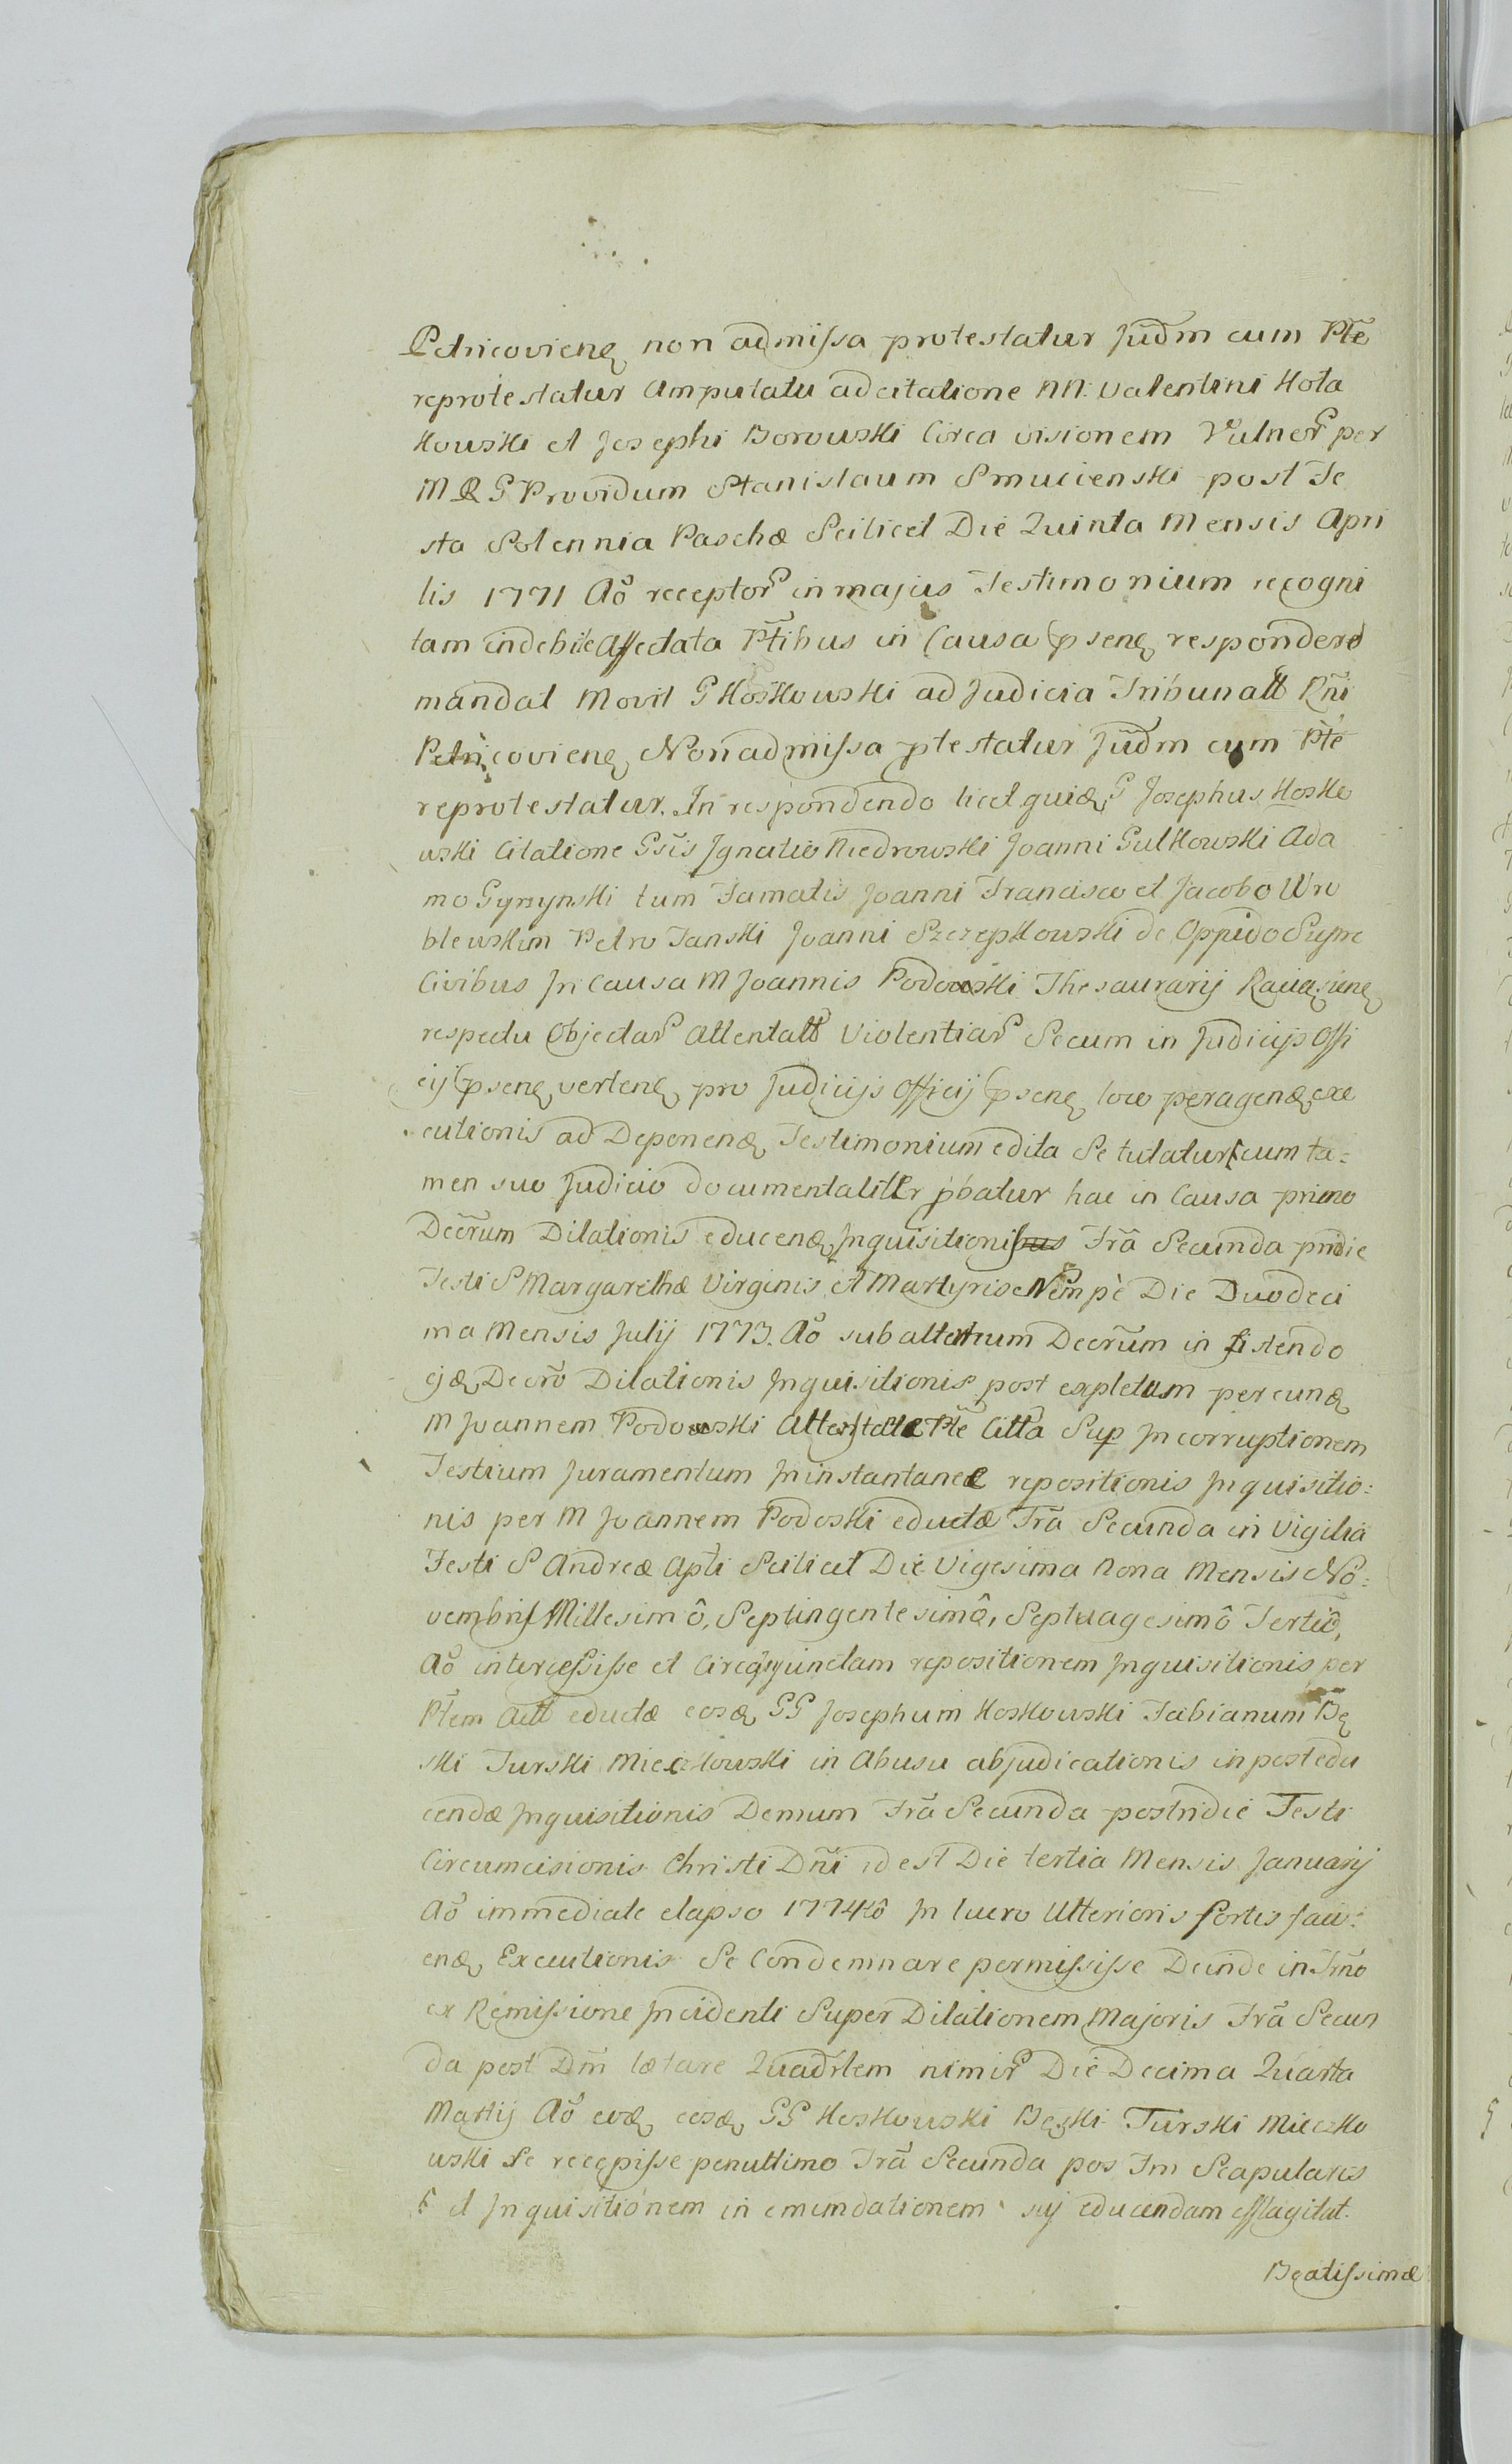 Petricovienę non admissa protestatur Judm cum Pte
reprotestatur Amputatu ad citatione NN. Valentini Kota
Kowski et Josephi Borowski Circa visionem Vulner per
M R G Providum Stanislaum Smucienski post Fe
sta Solennia Paschæ Scilicet Die Quinta Mensis Apri
lis 1771 Aõ receptor in majus Testimonium recogni
tam indebite Affectata Ptibus in Causa pseną respondere
mandat Movit G Koskowski ad Judicia Tribunall Rñi
Petricovienę Non admissa ptestatur Judm cum Pte
reprotestatur. In respondendo licet quidę G Josephus Kosko
wski Citatione Gsis Ignatio Niedrowski Joanni Gulkowski Ada
mo Gyzynski tum Famatis Joanni Francisco et Jacobo Wro
blewskim Petro Janski Joanni Szczepkowski de Oppido
Civibus In Causa M Joannis Podowski Thesaurarij Ravę
respectu Objectar Attentatt Violentiar Secum in Judicijs Offi
cij psenę vertenę pro Judicijs Officij psenę loco peragendę exe
cutionis ad Deponendę Testimonium edita Se tutatur cum ta=
men suo Judicio documentaliter pbatur hac in Causa primo
Decrum Dilationis educendę Inquisitionis Fra Secunda pridie
Festi S Margarethæ Virginis et Martyris Nempè Die Duodeci
ma Mensis Julij 1773. Aõ subalternum Decrum in sistendo
ejdę Decro Dilationis Inquisitionis post expletum per eundę
M Joannem Podowski Pte Citta Sup Incorruptionem
Testium Juramentum In instantanea repositionis Inquisitio=
nis per M Joannem Podoski eductæ Fra Secunda in Vigilia
Festi S Andreæ Apti Scilicet Die Vigesima Nona Mensis No=
vembris Millesimô, Septingentesimô, Septuagesimô Tertiô,
Aõ intercessisse et Circa repositionem Inquisitionis per
Ptem Actt eductæ eosdę GG Josephum Koskowski Fabianum Bę
ski Turski Mieczkowski in Abusu abjudicationis in post edu
cendæ Inquisitionis Demum Fra Secunda postridie Festi
Circumcisionis Christi Dñi id est Die tertia Mensis Januarij
Aõ immediate elapso 1774tô In lucro Ulterioris fortis faci=
endę Executionis Se Condemnare permississe Deinde in Trno
ex Remissione Incidenti Super Dilationem Majoris Fra Secun
da post Dm̃ lætare Quadrlem nimir Die Decima Quarta
Martij Aõ eodę eosdę GG Koskowski Bęski Turski Mieczko
wski se recepisse penultimo Fra Secunda pos Fm Scapularis
et Inquisitionem in emendationem sij educendam efflagitat.
Beatissimæ